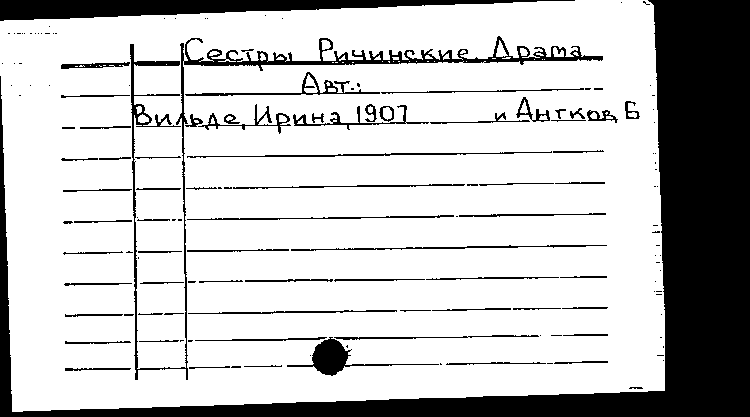 Сестры Ричинские Драма
Авт.:
Вильде, Ирина, 1907 и Антков, Б